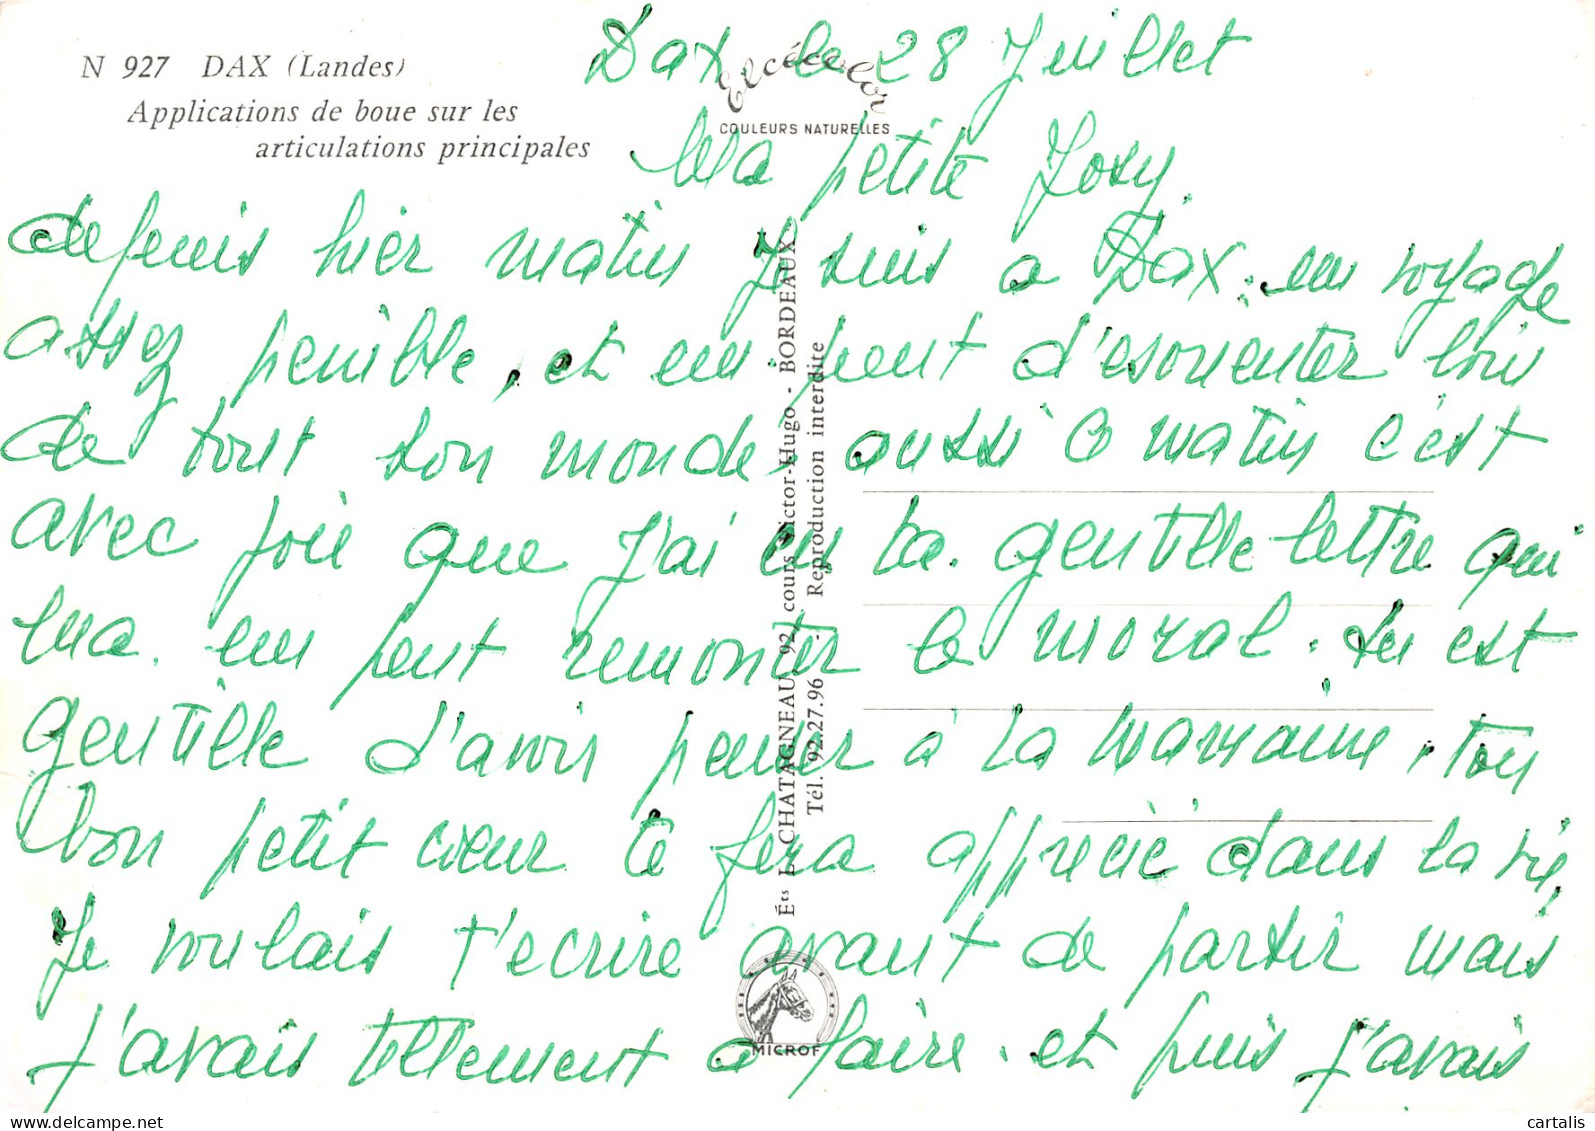 N 927 DAX (Landes)
Applications de boue sur les
articulations principales
Elcécolor
COULEURS NATURELLES
Dax le 28 Juillet
Ma petite Josy
depuis hier matin J suis a Dax. un voyage
assez penible, et un peut d'esorienter loin
de tout son monde, aussi ce matin c'est
avec joie que J'ai eu ta gentille lettre qui
ma un peut remonter le moral. tu est
gentille d'avoir penser à la marraine, ton
bon petit cœur te fera apprecié dans la vie,
Je voulais t'ecrire avant de partir mais
J'avais tellement a faire. et puis J'avais
Éts L. CHATAGNEAU, 92, cours Victor-Hugo - BORDEAUX
Tél. 92.27.96 - Reproduction interdite
MICROF
cartalis
delcampe.net